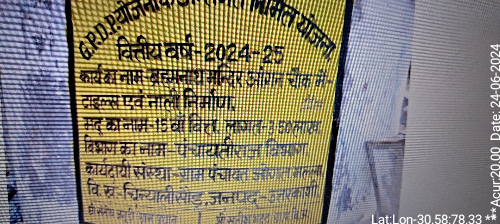 G.P.D.P योजनान्तर्गत निर्मित योजना,
वित्तीय वर्ष-2024-25
कार्य का नाम- ब्रह्मनाथ मन्दिर आंगन चौक में-
टाइल्स एवं नाली निर्माण,
मद का नाम-15 वां वित्त, लागत-3.50 लाख
विभाग का नाम- पंचायतीराज विभाग
कार्यदायी संस्था-ग्राम पंचायत
वि. खं. चिन्यालीसौड़, जनपद- उत्तरकाशी
Lat:Lon-30.58:78.33
***Apr:20.00 Date:24-06-2024